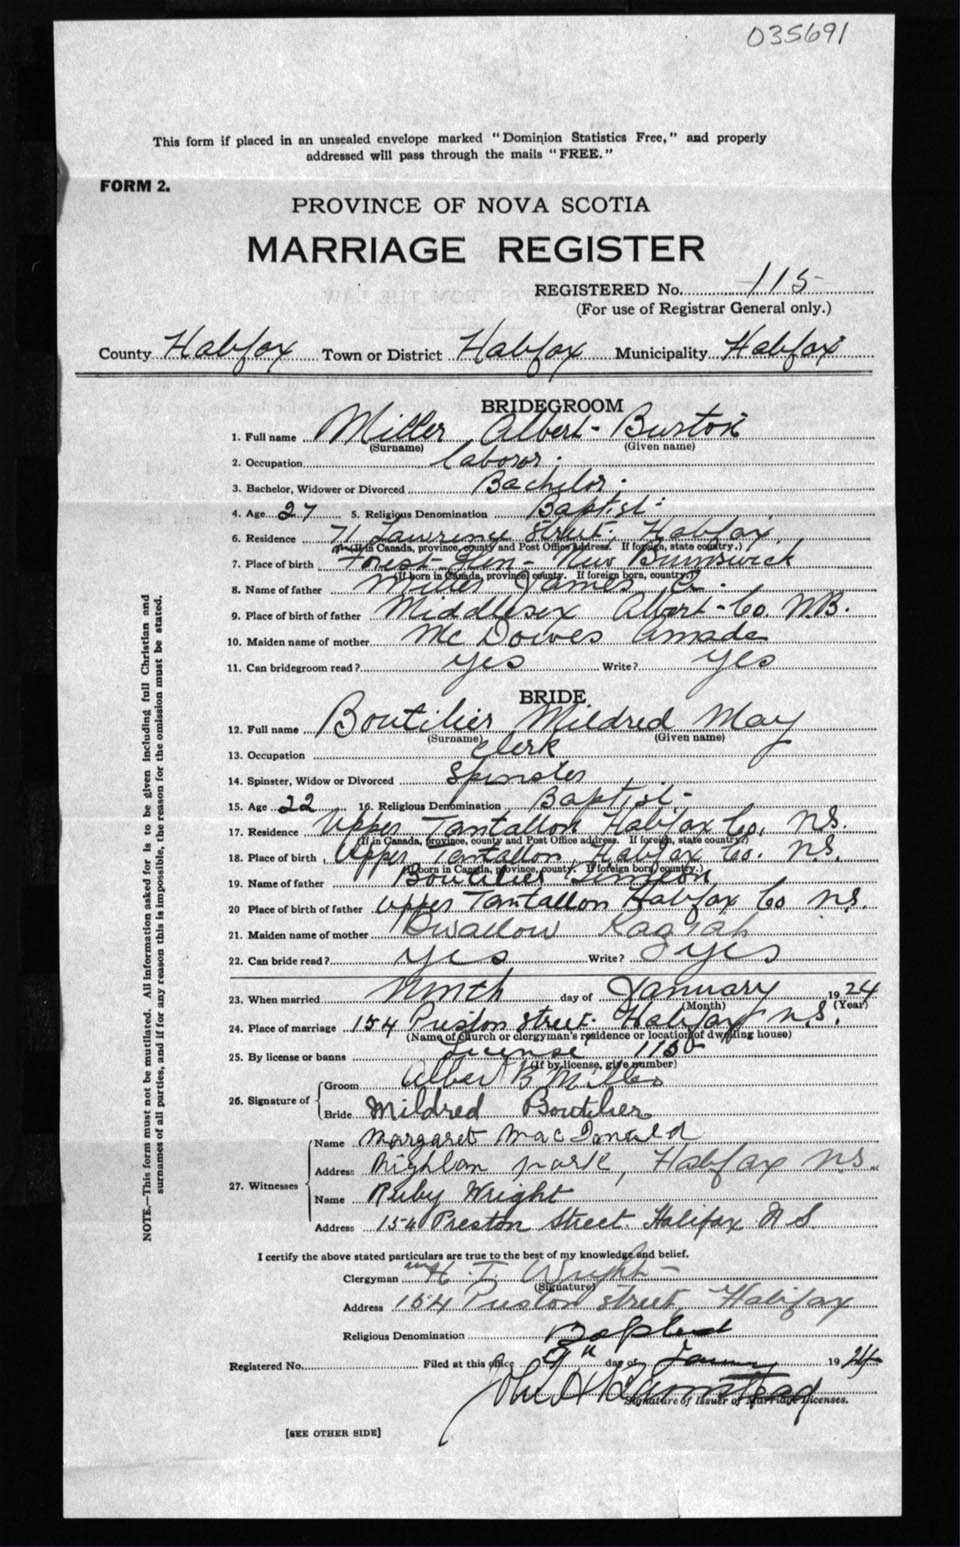 035691
This form if placed in an unsealed envelope marked "Dominion Statistics Free," and properly
addressed will pass through the mails "FREE."
FORM 2.
PROVINCE OF NOVA SCOTIA
MARRIAGE REGISTER
REGISTERED No. 115
(For use of Registrar General only.)
County Halifax Town or District Halifax Municipality Halifax
BRIDEGROOM
1. Full name Miller Albert Burton
(Surname) (Given name)
2. Occupation laboror
3. Bachelor, Widower or Divorced Bachelor
4. Age 27 5. Religious Denomination Baptist
6. Residence 71 Lawrence Street, Halifax
(If in Canada, province, county and Post Office address. If foreign, state country.)
7. Place of birth Forest Glen - New Brunswick
(If born in Canada, province, county. If foreign born, country.)
8. Name of father Miller James
9. Place of birth of father Middlesex Albert Co. N.B.
10. Maiden name of mother Amada
11. Can bridegroom read? yes Write? yes
BRIDE
12. Full name Boutilier Mildred May
(Surname) (Given name)
13. Occupation Clerk
14. Spinster, Widow or Divorced Spinster
15. Age 22 16. Religious Denomination Baptist
17. Residence Upper Tantallon Halifax Co. N.S.
(If in Canada, province, county and Post Office address. If foreign, state country.)
18. Place of birth Upper Tantallon, Halifax Co. N.S.
(If born in Canada, province, county. If foreign born, country.)
19. Name of father Boutilier Simeon
20 Place of birth of father Upper Tantallon Halifax Co N.S.
21. Maiden name of mother Swallow
22. Can bride read? yes Write? yes
23. When married Ninth day of January 1924
(Month) (Year)
24. Place of marriage 154 Preston Street Halifax N.S.
(Name of church or clergyman's residence or location of dwelling house)
25. By license or banns License
(If by license, give number)
26. Signature of
Groom Albert B Miller
Bride Mildred Boutilier
27. Witnesses
Name Margaret MacDonald
Address park, Halifax N.S.
Name Ruby Wright
Address 154 Preston Street. Halifax N S.
I certify the above stated particulars are true to the best of my knowledge and belief.
Clergyman H. T. Wright
(Signature)
Address 154 Preston street, Halifax
Religious Denomination Baptist
Registered No. Filed at this office 9th day of January 1924
Signature of Issuer of Marriage Licenses.
[SEE OTHER SIDE]
NOTE.—This form must not be mutilated. All information asked for is to be given including full Christian and
surnames of all parties, and if for any reason this is impossible, the reason for the omission must be stated.